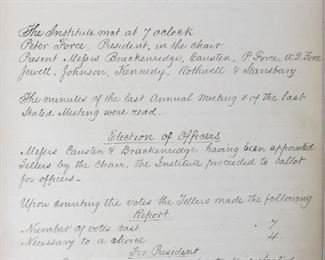 The Institute met at 7 oclock
Peter Force, President, in the chair
Present Messrs Brackenridge, Causten, P. Force, W.Q. Force
Jewell, Johnson, Kennedy, Rothwell & Stansbury.
The minutes of the last Annual Meeting & of the last
Stated Meeting were read.
Election of Officers
Messrs Causten & Brackenridge having been appointed
Tellers by the Chair, the Institute proceeded to ballot
for officers.
Upon counting the votes the Tellers made the following
Report
Number of votes cast 7
Necessary to a choice 4
For President